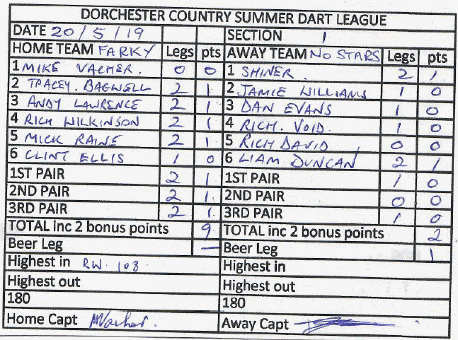 DORCHESTER COUNTRY SUMMER DART LEAGUE
DATE 20/5/19 SECTION 1
HOME TEAM FARKY Legs pts AWAY TEAM NO STARS Legs pts
1 MIKE VACHER. 0 0 1 SHINER. 2 1
2 TRACEY. BAGWELL 2 1 2 JAMIE WILLIAMS 1 0
3 ANDY LAWRENCE 2 1 3 DAN EVANS 1 0
4 RICH WILKINSON 2 1 4 RICH. VOID. 1 0
5 MICK RAINE 2 1 5 RICH DAVID 0 0
6 CLINT ELLIS 1 0 6 LIAM DUNCAN 2 1
1ST PAIR 2 1 1ST PAIR 1 0
2ND PAIR 2 1. 2ND PAIR 0 0
3RD PAIR 2 1. 3RD PAIR 1 0
TOTAL inc 2 bonus points 9 TOTAL inc 2 bonus points 2
Beer Leg — Beer Leg 1
Highest in RW. 103. Highest in
Highest out Highest out
180 180
Home Capt MVacher. Away Capt